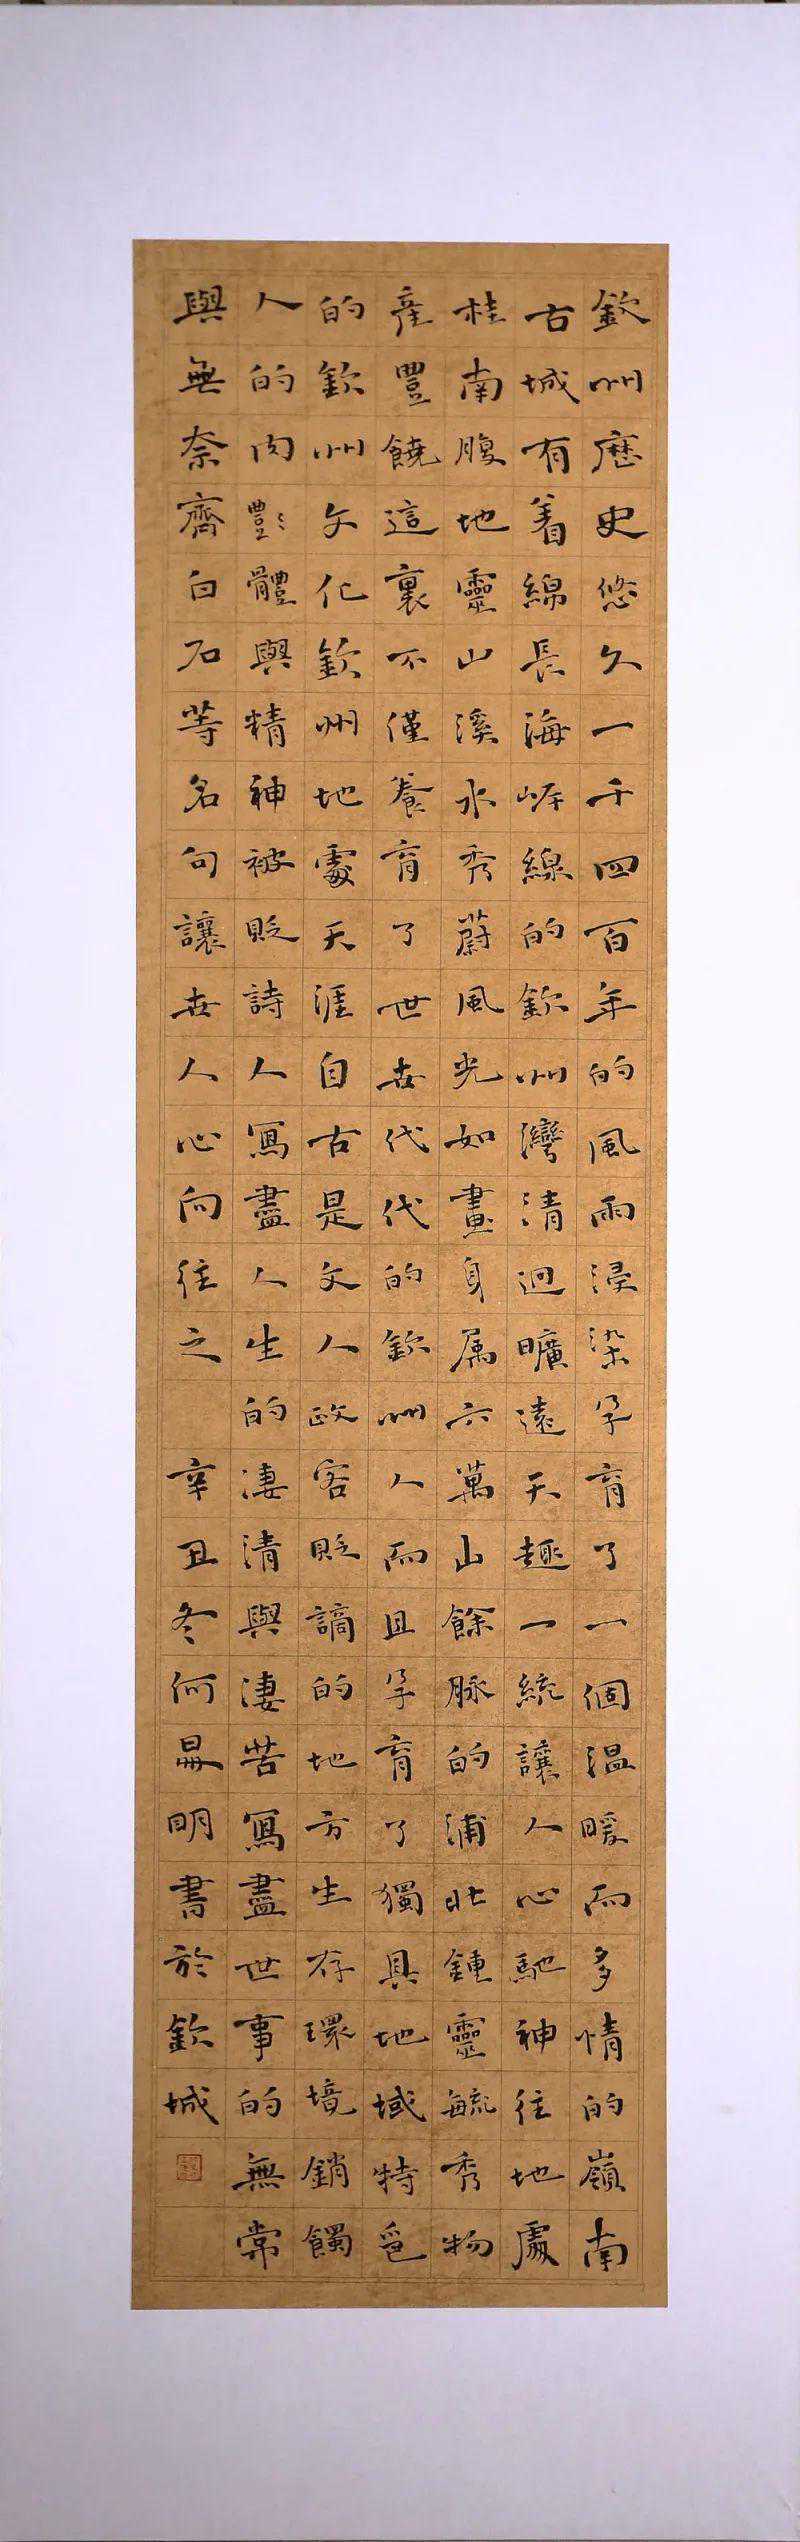 欽州歷史悠久一千四百年的風雨浸染孕育了一個溫暖而多情的嶺南
古城有着綿長海岸線的欽州灣清迥曠遠天趣一統讓人心馳神往地處
桂南腹地靈山溪水秀蔚風光如畫身屬六萬山餘脉的浦北鍾靈毓秀物
產豐饒這裏不僅養育了世世代代的欽州人而且孕育了獨具地域特色
的欽州文化欽州地處天涯自古是文人政客貶謫的地方生存環境銷
人的肉體與精神被貶詩人寫盡人生的淒清與淒苦寫盡世事的無常
與無奈齊白石等名句讓世人心向往之 辛丑冬何明書於欽城